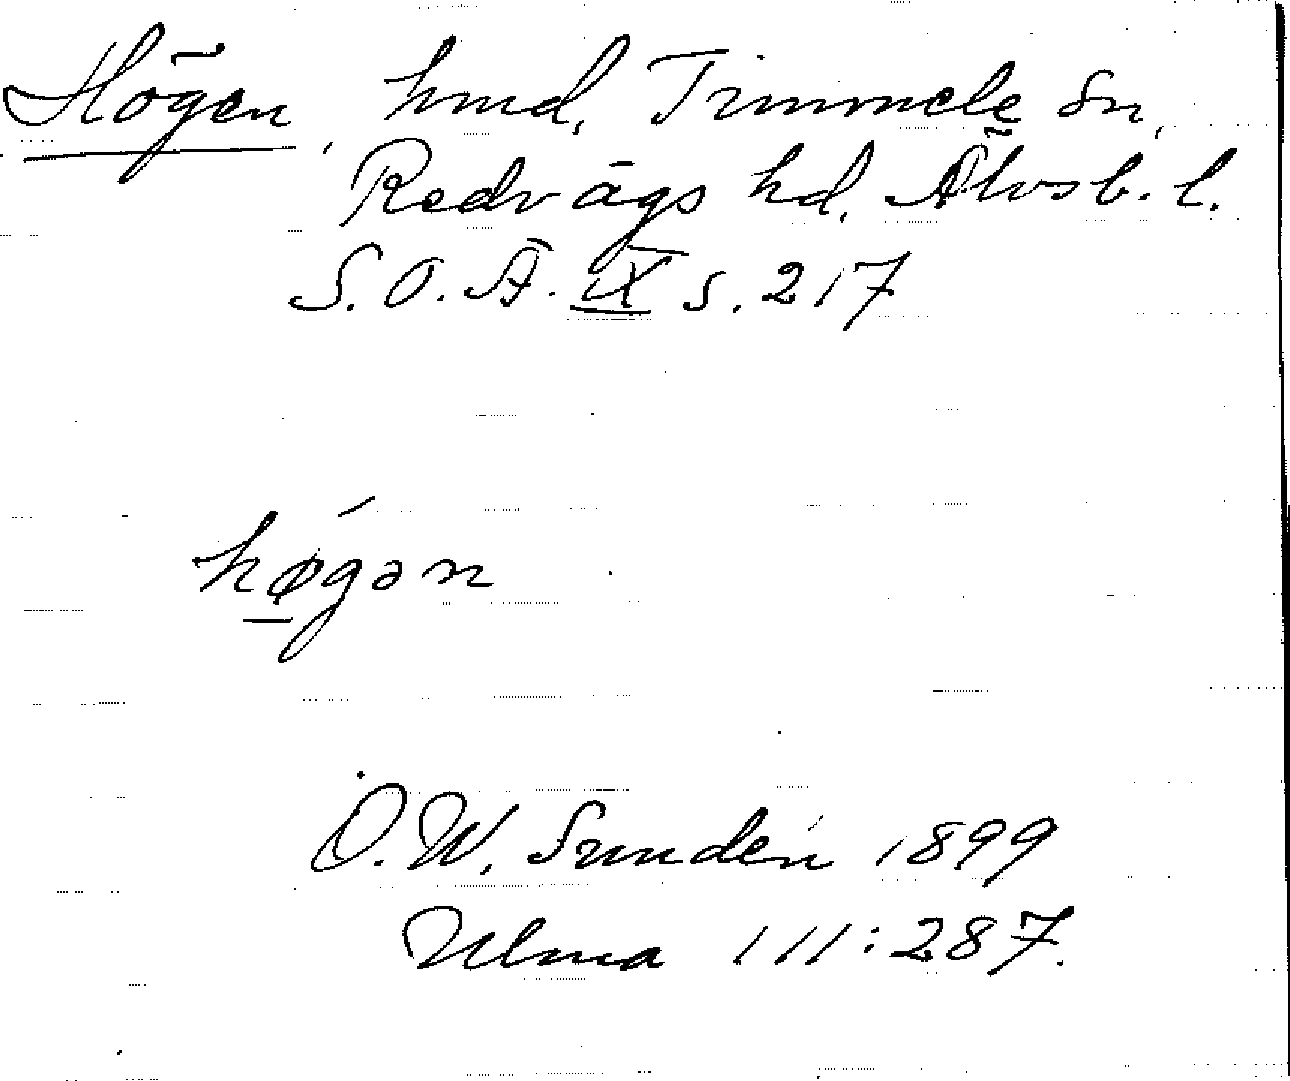 Högen, hmd, Timmele sn,
Redvägs hd, Älvsb. l.
S. O. Ä. IX s. 217
hǿ̱gən
O. W. Sundén 1899
Ulma 111:287.